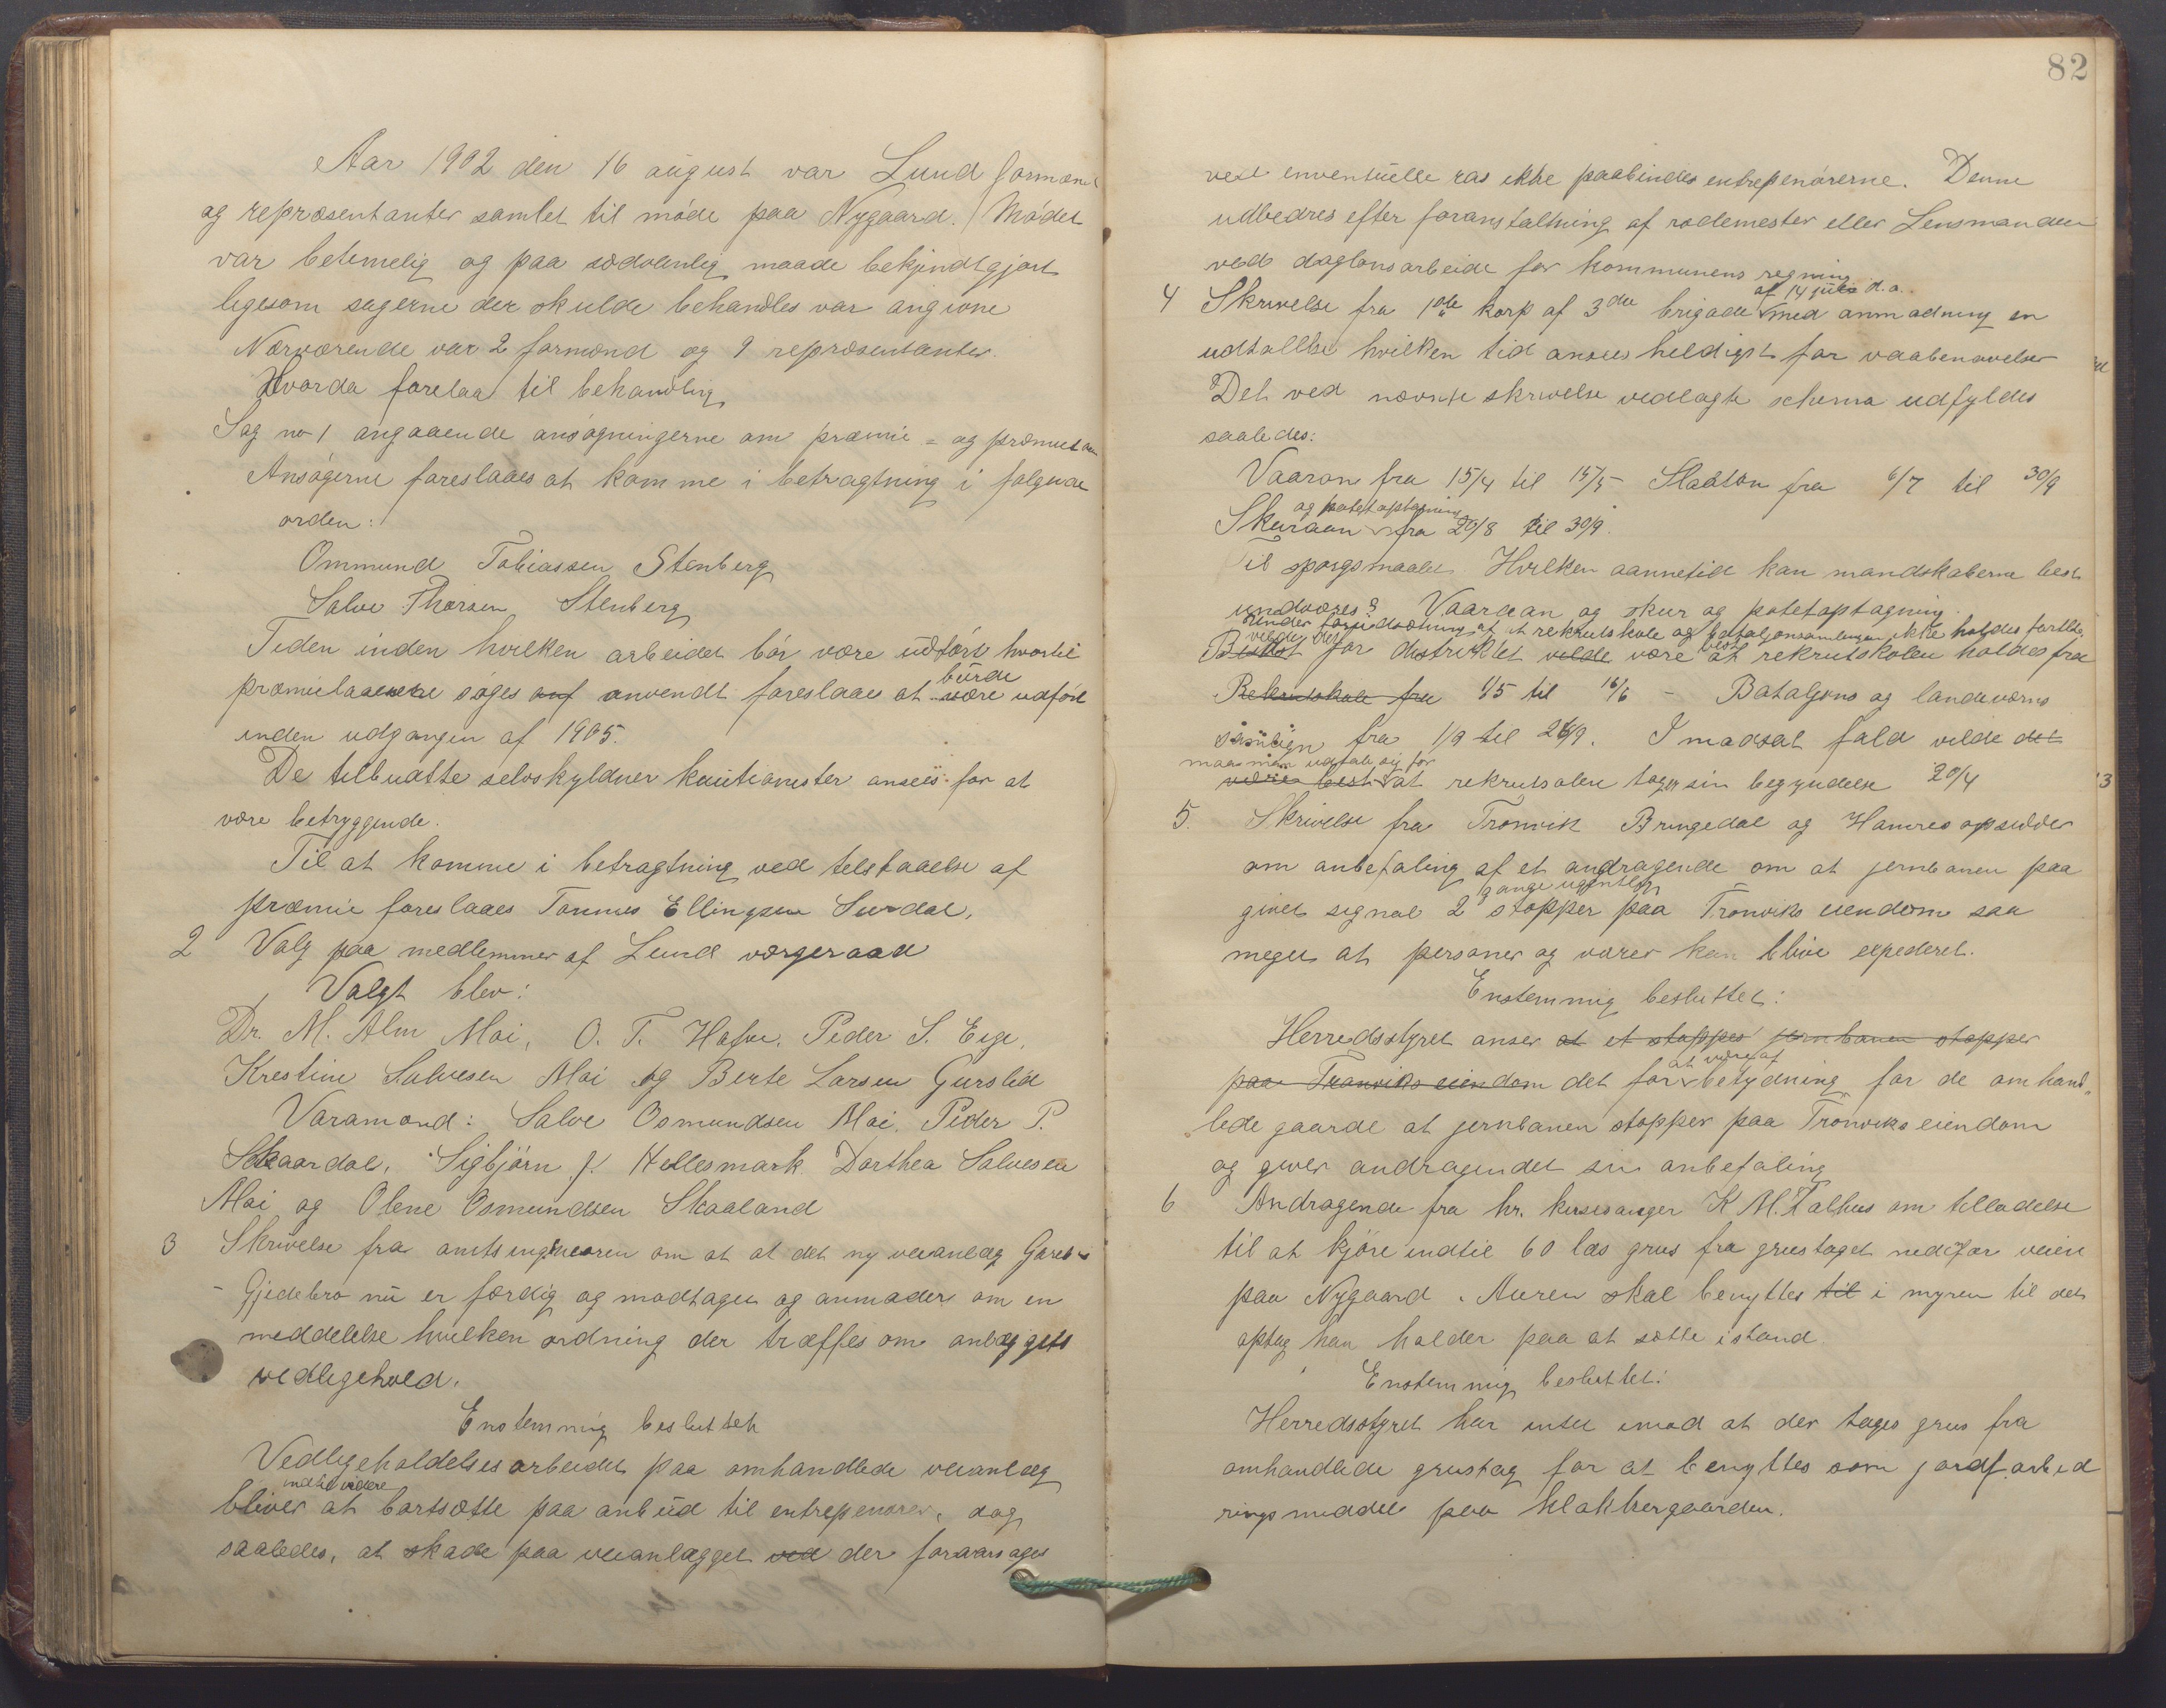 Aar 1902 den 16 august var Lund formænd
og repræsentanter samlet til møde paa Nygaard. Mødet
var betimelig og paa sædvanlig maade bekjendtgjort
ligesom sagerne der skulde behandles var angivne
Nærværende var 2 formænd og 9 repræsentanter.
Hvorda forelaa til behandling
Sag no 1 angaaende ansøgningerne om præmie = og præmielaan
Ansøgerne foreslaaes at komme i betragtning i følgende
orden:
Ommund Tobiassen Stenberg
Salve Thorsen Stenberg
Tiden inden hvilken arbeidet bør være udført hvortil
burde
præmielaanene søges anvendt foreslaaes at være udført
inden udgangen af 1905.
De tilbudte selvskyldner kautionister ansees for at
være betryggende.
Til at komme i betragtning ved tilstaaelse af
præmie foreslaaes Tonnes Ellingsen Surdal.
2 Valg paa medlemmer af Lund værgeraad
Valgt blev:
Dr. M. Alm Moi, O. T. Hafsø. Peder S. Eige,
Krestine Salvesen Moi og Berte Larsen Gurslid
Varamænd: Salve Osmundsen Moi. Peder P.
Skaardal. Sigbjørn J. Hellesmark Dorthea Salvesen
Moi og Olene Osmundsen Skaaland
3 Skrivelse fra amtsingeniøren om at at det ny veianlæg
- Gjedebro nu er færdig og modtaget og anmader om en
meddelelse hvilken ordning der træffes om anlæggets
vedligehold.
Enstemmig besluttet
Vedligeholdelsesarbeidet paa omhandlede veianlæg
indtil videre
bliver at bortsætte paa anbud til entreprenører, dog
saaledes, at skade paa veianlægget ved der foraarsages
82
ved eventuelle ras ikke paabindes entreprenørerne. Denne
udbedres efter foranstaltning af rodemester eller Lensmanden
ved daglønsarbeide for kommunens regning
af 14 juli d.a.
4 Skrivelse fra 1ste korp af 3die brigade med anmodning en
udtallelse hvilken tid ansees heldigst for vaabenøvelser
Det ved nævnte skrivelse vedlagte schema udfyldes
saaledes:
Vaaron fra 15/4 til 15/5 Slaaton fra 6/7 til 30/9
og potetoptagning
Skuraan fra 20/8 til 30/9.
Til spørgsmaalet Hvilken aannetid kan mandskaberne best
undværes? Vaaraan og skur og potetoptagning.
Under forudsætning af at rekrutskole og bataljonsamlingen ikke holdes
vilde det best
Bedst for distriktet vilde være at rekrutskolen holdes fra
Rekrutskole fra 1/5 til 16/6 - Bataljons og landeværns
samlign fra 1/9 til 26/9. I modsat fald vilde det
maa man udtale sig for
være best at rekrutsolen tager sin begyndelse 20/4
5. Skrivelse fra Tronvik Bringedal og Hamres opsidder
om anbefaling af et andragende om at jernbanen paa
gange ugentlig
givet signal 2 stopper paa Tronviks eiendom saa
meget at personer og varer kan blive expederet.
Enstemmig besluttet:
Herredsstyret anser at et stoppes jernbanen stopper
at være af
paa Tronviks eiendom det for betydning for de omhand„
lede gaarde at jernbanen stopper paa Tronviks eiendom
og giver andragendet sin anbefaling
6 Andragende fra hr. kirkesanger K M. Falhus om tilladelse
til at kjøre indtil 60 læs grus fra grustaget nedifor veien
paa Nygaard. Auren skal benyttes til i myren til det
optag han holder paa at sætte istand
Enstemmig besluttet:
Herredsstyret har intet imod at der tages grus fra
omhandlede grustag for at benyttes som jordforbed
ringsmiddel paa klokkergaarden.